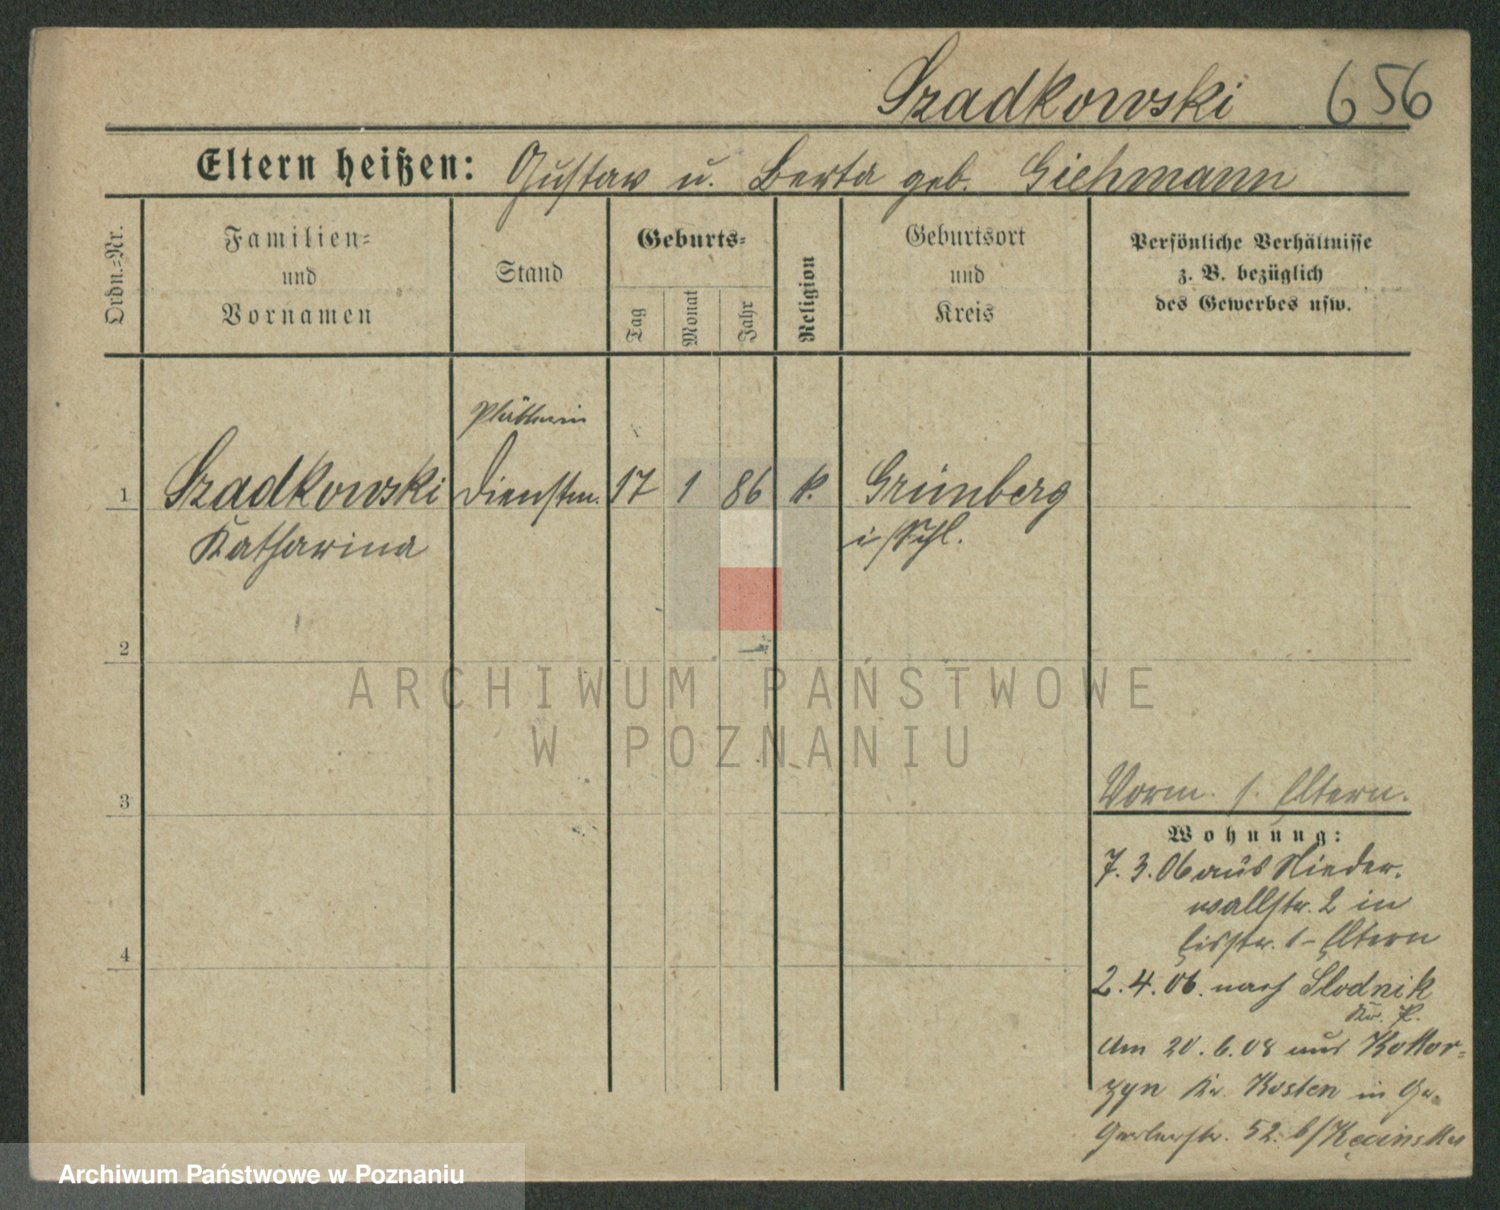 Szadkowski 656
Eltern heißen: Gustav u. Berta geb. Giehmann
Ordn.-Nr.
Familien-
und
Vornamen
Stand
Geburts-
Tag
Monat
Jahr
Religion
Geburtsort
und
Kreis
Persönliche Verhältnisse
z. B. bezüglich
des Gewerbes usw.
Plätterin
1 Szadkowski Dienstm. 17 1 86 k. Grünberg
Katharina i/Schl.
2
ARCHIWUM PAŃSTWOWE
W POZNANIU
3
Vorm. s. Eltern.
Wohnung:
7. 3. 06 aus Nieder-
wallstr. 2 in
1 - Eltern
4
2. 4. 06. nach Slodnik
Kr. P.
Am 20. 6. 08 aus Kokor-
zyn Kr. Kosten in Gr.
Gerberstr. 52. b/
Archiwum Państwowe w Poznaniu